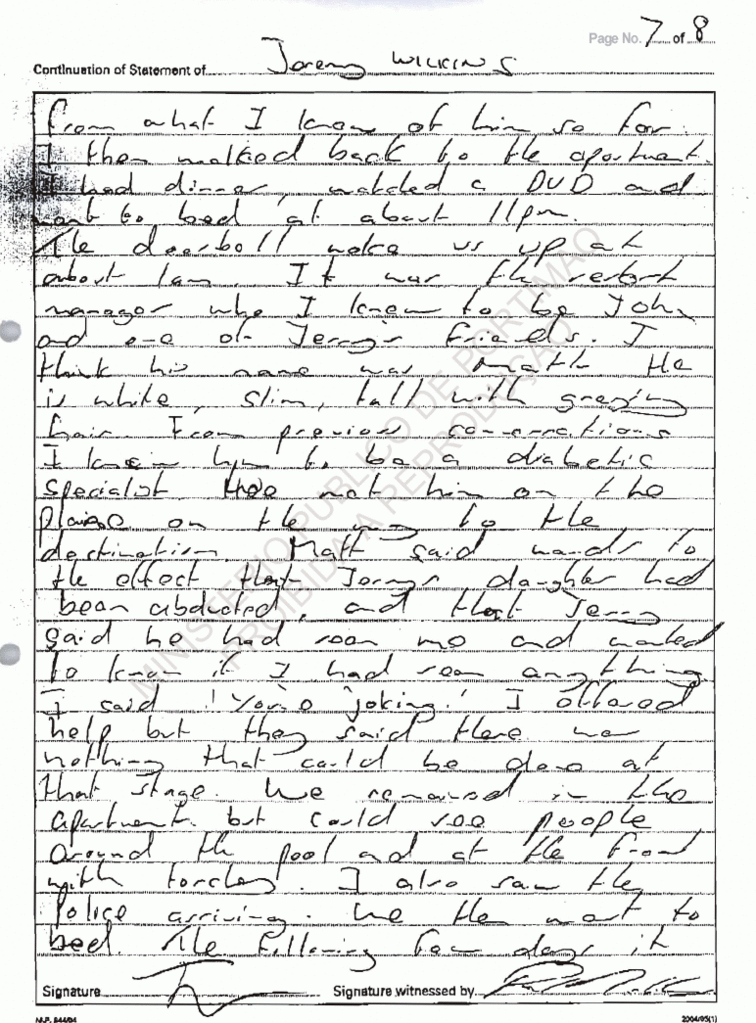 Page No. 7 of 8
Continuation of Statement of Jeremy WILKINS
from what I know of him so far.
I then walked back to the apartment.
I had dinner, watched a DVD and
went to bed at about 11pm.
The doorbell woke us up at
about 1am. It was the resort
manager who I knew to be John,
and one of Jerry's friends. I
think his name was Matt. He
is white, slim, tall with greying
hair. From previous conversations
I know him to be a diabetic
specialist. met him on the
plane on the way to the
destination. Matt said words to
the effect that Jerrys daughter had
been abducted, and that Jerry
said he had seen me and wanted
to know if I had seen anything.
I said 'You're joking.' I offered
help but they said there was
nothing that could be done at
that stage. We remained in the
apartment but could see people
around the pool and at the front
with torches. I also saw the
Police arriving. We then went to
bed. The following few days it
Signature
Signature witnessed by
MINISTERIO PUBLICO DE PORTIMAO
PROIBIDA A REPRODUCAO
2004/05(1)